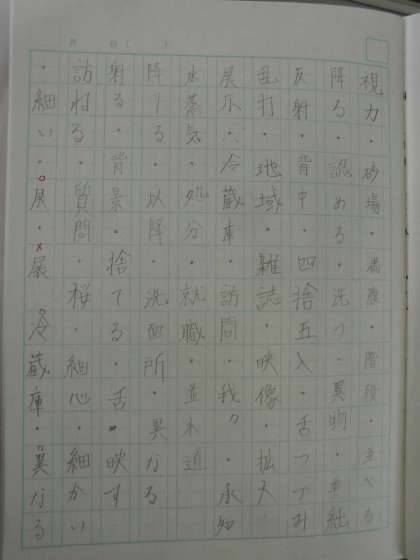 視力・砂場・満腹・階段・主べる
降る・認める・洗う・異物・単純
反射・背中・四捨五入・舌つづみ
乱打・地域・雑誌・映像・拡大
展示・冷蔵庫・訪問・我々・承知
水蒸気・処分・就職・並木道
降りる・以降・洗面所・異なる
射る・背景・捨てる・舌・映す
訪ねる・質問・桜・細心・細かい
・細い・展・展・冷蔵庫・異なる